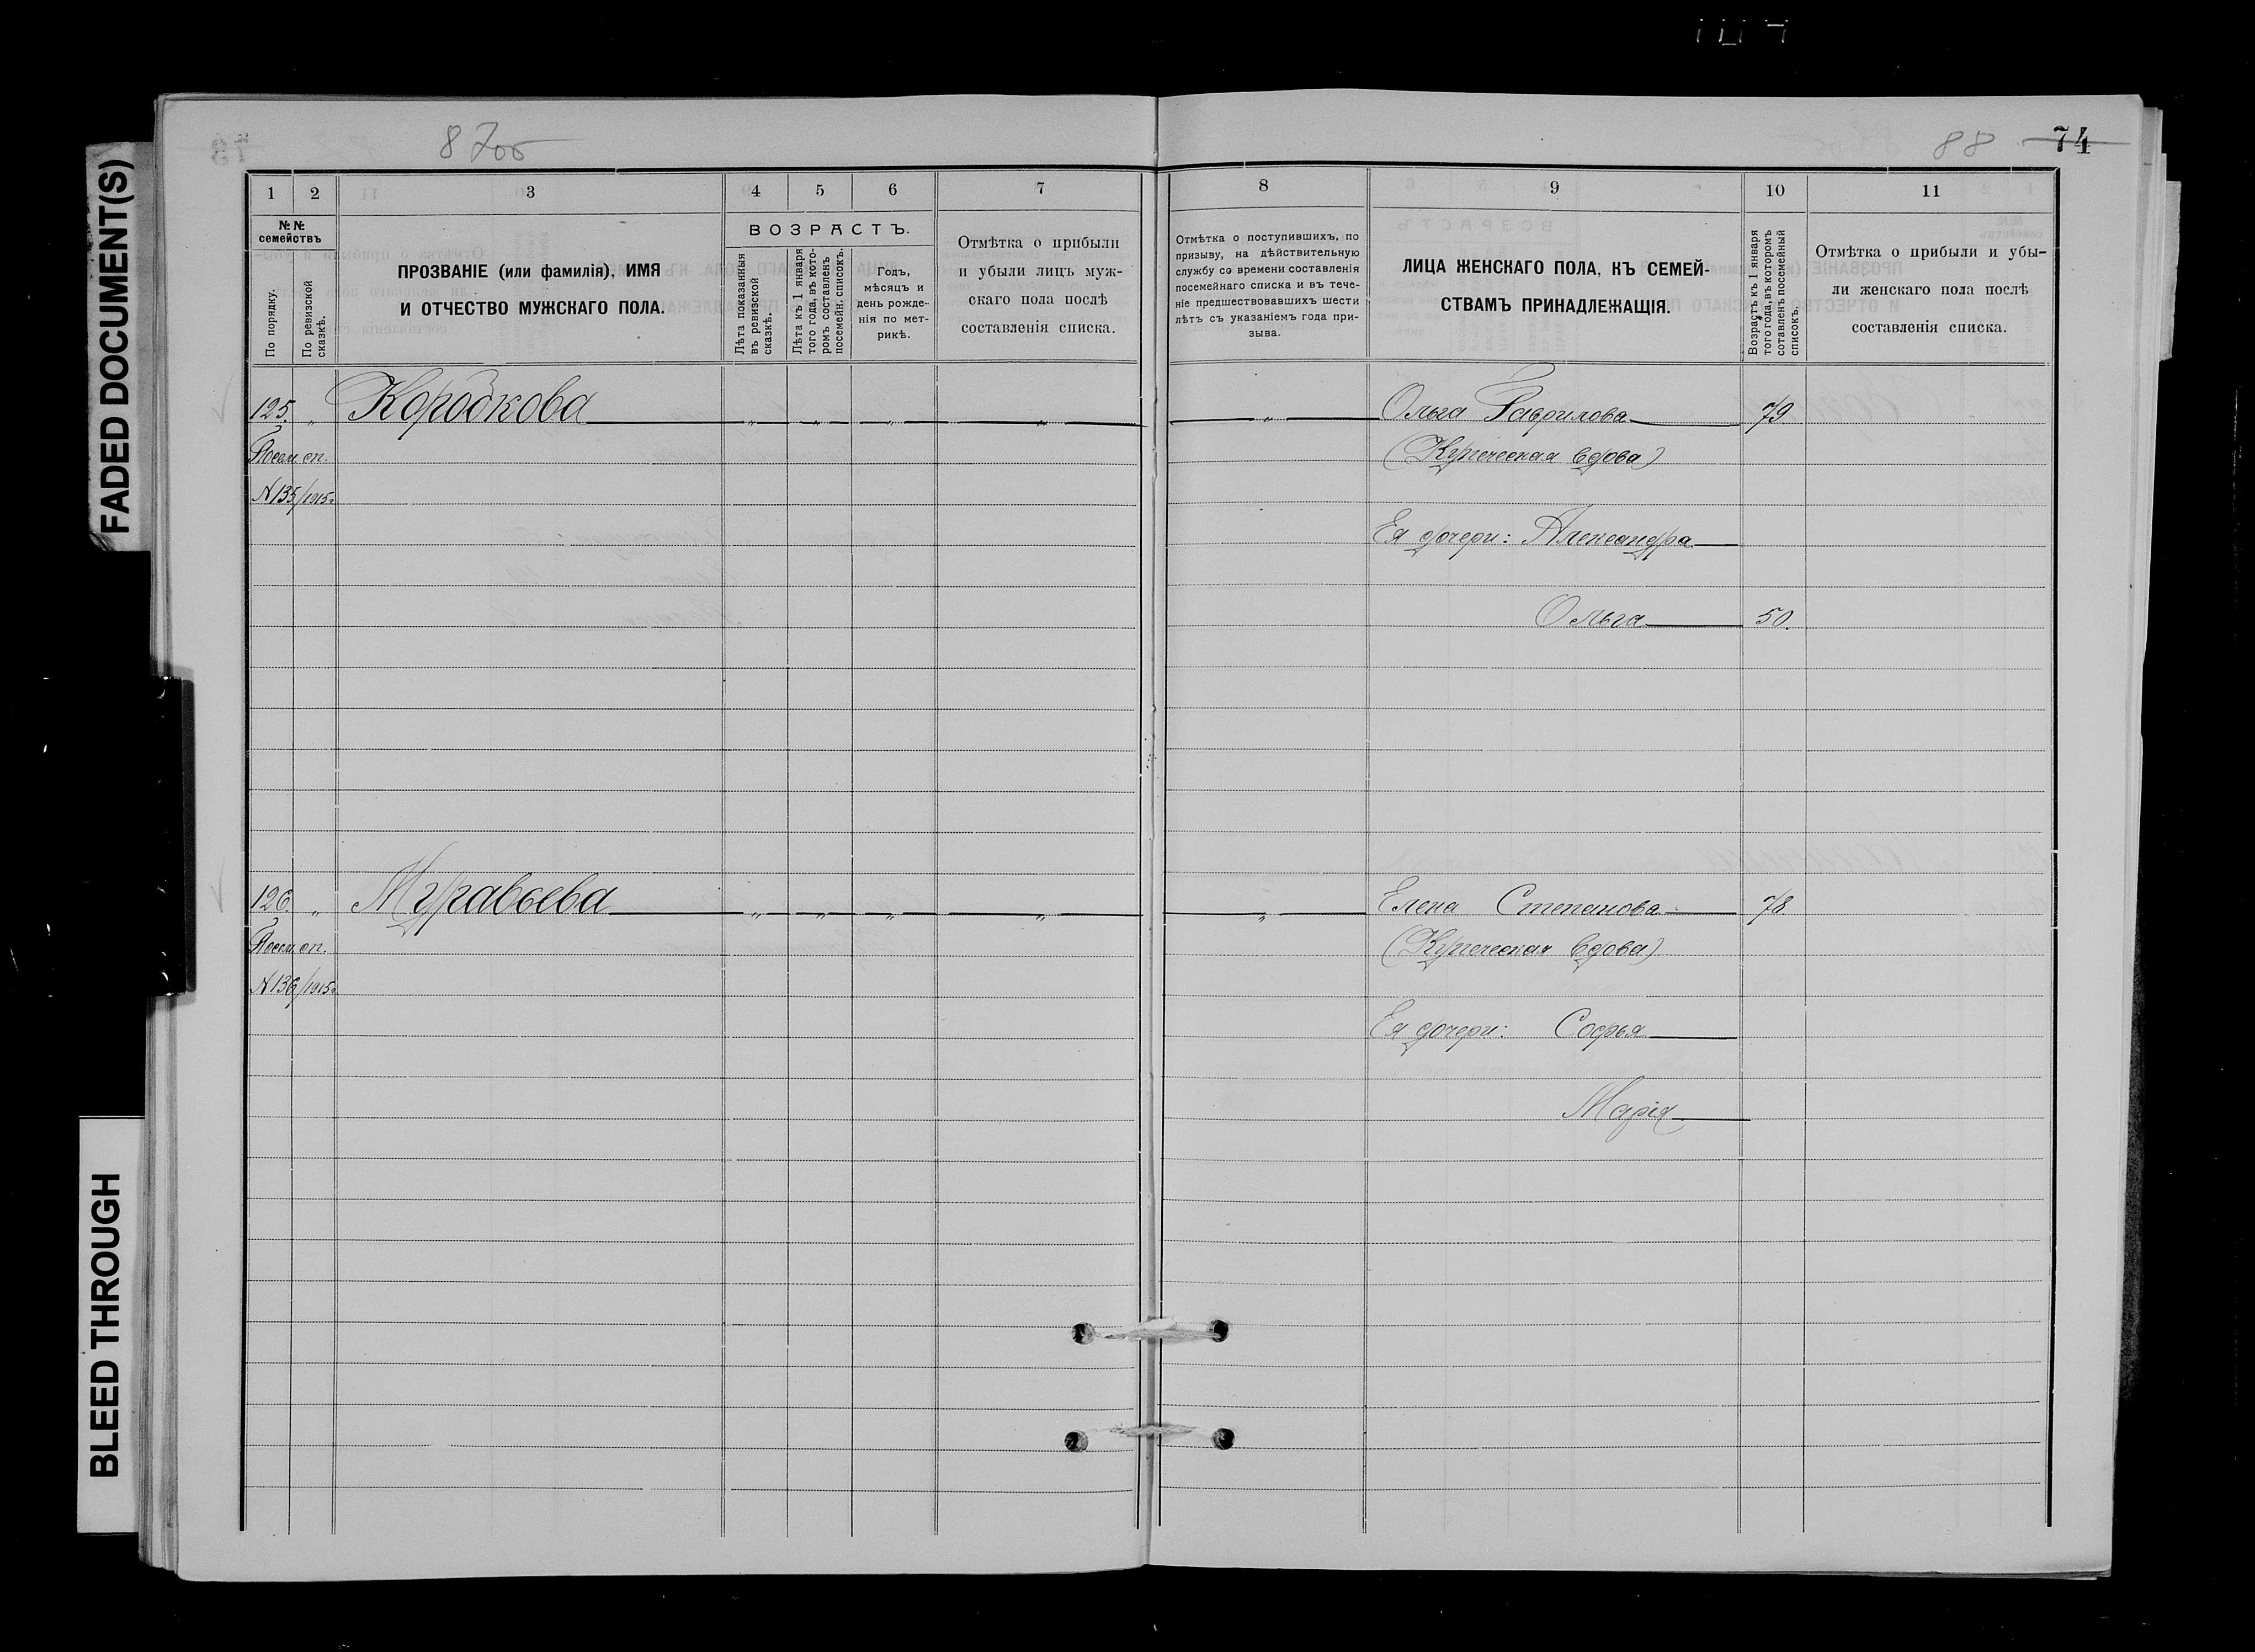 FADED DOCUMENT(S)
BLEED THROUGH
87об
88 74
1 2 3 4 5 6 7
№№ семействъ
По порядку.
По ревизской сказкѣ.
ПРОЗВАНІЕ (или фамилія), ИМЯ
И ОТЧЕСТВО МУЖСКАГО ПОЛА.
ВОЗРАСТЪ.
Лѣта показанныя
въ ревизской
сказкѣ.
Лѣта къ 1 января
того года, въ кото-
ромъ составленъ
посемейн. списокъ.
Годъ,
мѣсяцъ и
день рожде-
нія по мет-
рикѣ.
Отмѣтка о прибыли
и убыли лицъ муж-
скаго пола послѣ
составленія списка.
125. „ Коробкова „ „ „ „
Посем. сп.
№ 135/1915г.
126. „ Муравьева „ „ „ „
Посем. сп.
№ 136/1915г.
8 9 10 11
Отмѣтка о поступившихъ, по
призыву, на дѣйствительную
службу со времени составленія
посемейнаго списка и въ тече-
ніе предшествовавшихъ шести
лѣтъ съ указаніемъ года при-
зыва.
ЛИЦА ЖЕНСКАГО ПОЛА, КЪ СЕМЕЙ-
СТВАМЪ ПРИНАДЛЕЖАЩІЯ.
Возрастъ къ 1 января
того года, въ которомъ
составленъ посемейный
списокъ.
Отмѣтка о прибыли и убы-
ли женскаго пола послѣ
составленія списка.
„ Ольга Гаврилова 79.
(Купеческая вдова)
Ея дочери: Александра
Ольга 50.
„ Елена Степанова 78.
(Купеческая вдова)
Ея дочери: Софья
Марія